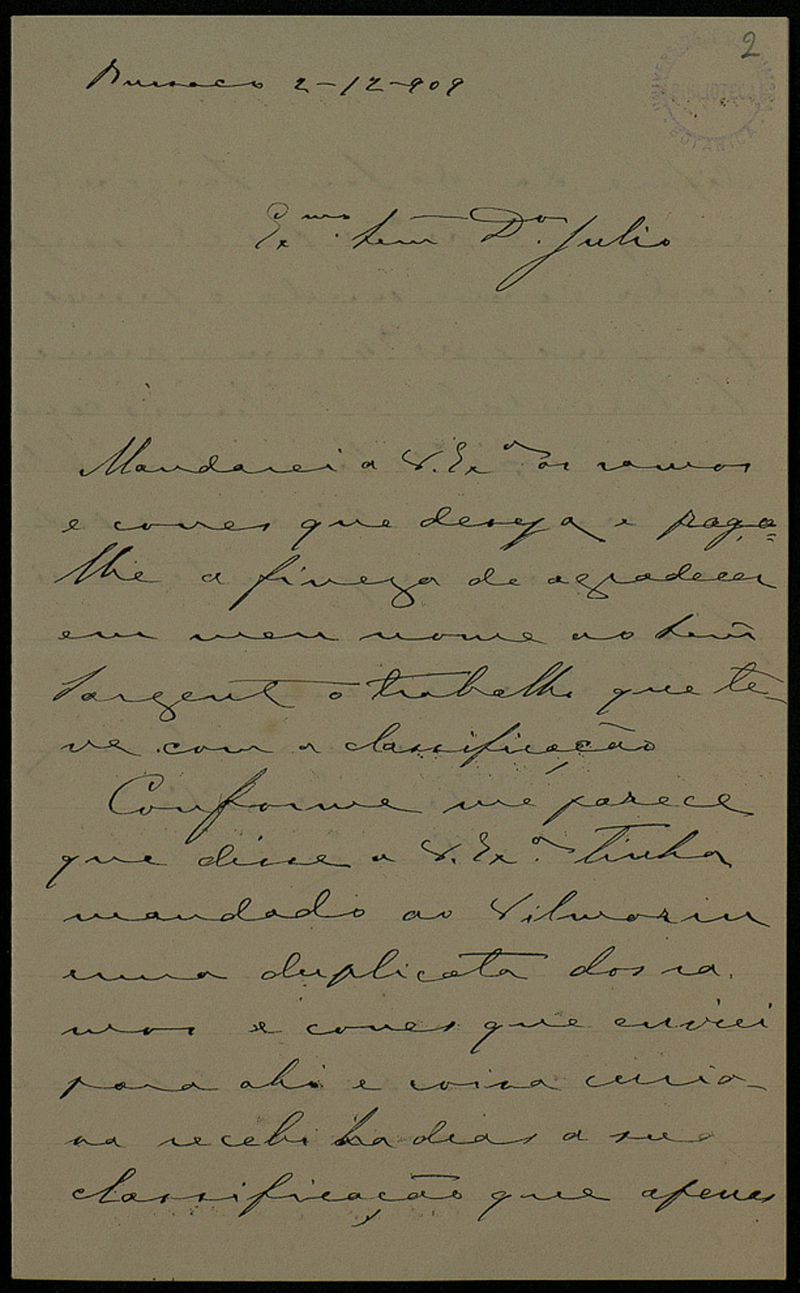 2
UNIVERSIDADE DE COIMBRA
BIBLIOTECA
BOTANICA
Bussaco 2-12-909
Ex.mo Senr Dor Julio
Mandarei a V. Exa os ramos
e cones que deseja e faça=
lhe a fineza de agradecer
em meu nome ao Senr
Sargent o trabalho que te-
ve com a classificação
Conforme me parece
que disse a V. Exa tinha
mandado ao Vilmorin
uma duplicata dos ra-
mos e cones que enviei
para ahi e coisa curio-
sa recebi ha dias a sua
classificação que apenas